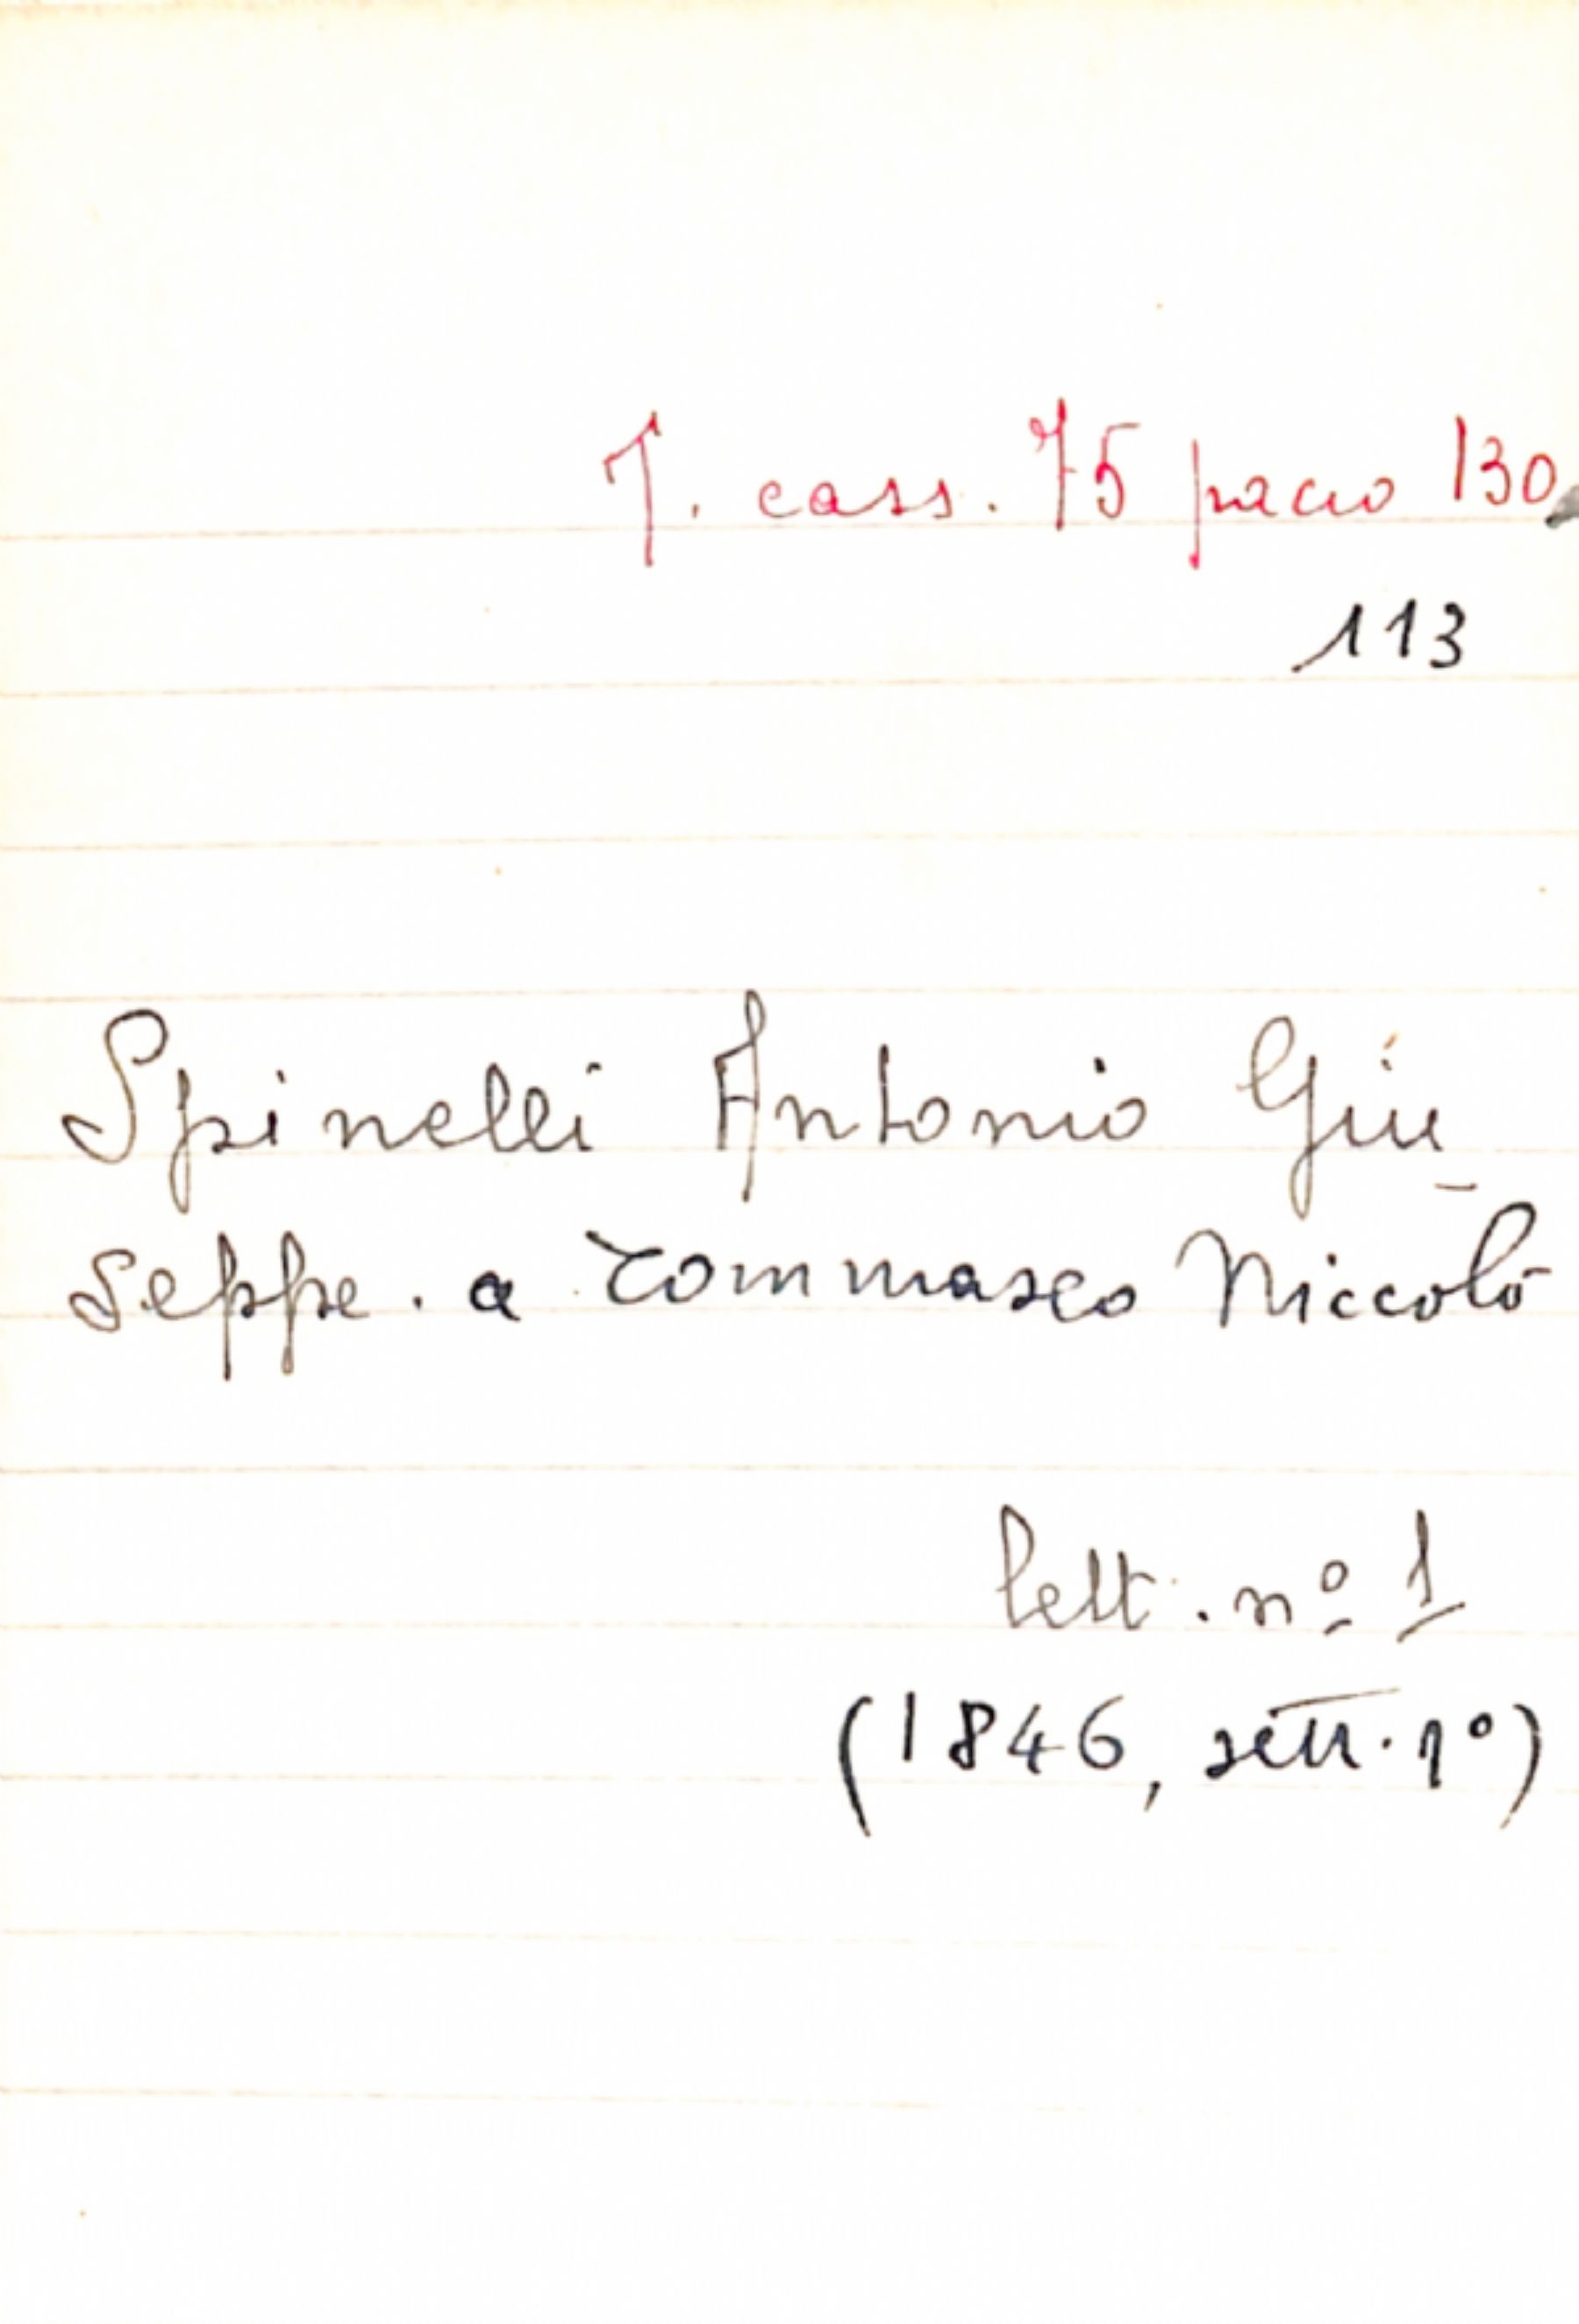 T. cass. 75 pacco 130
113
Spinelli Antonio Giu_
seppe. a Tommaseo Niccolò
lett. nº 1
(1846, sett. 1º)